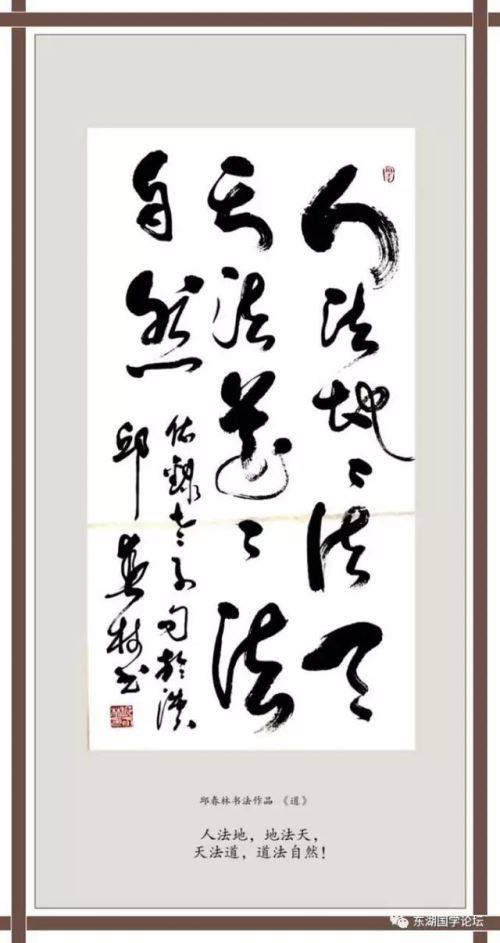 人法地〻法天
天法道〻法
自然
録老子句於漢
邱春林书
邱春林书法作品 《道》
人法地，地法天，
天法道，道法自然！
东湖国学论坛